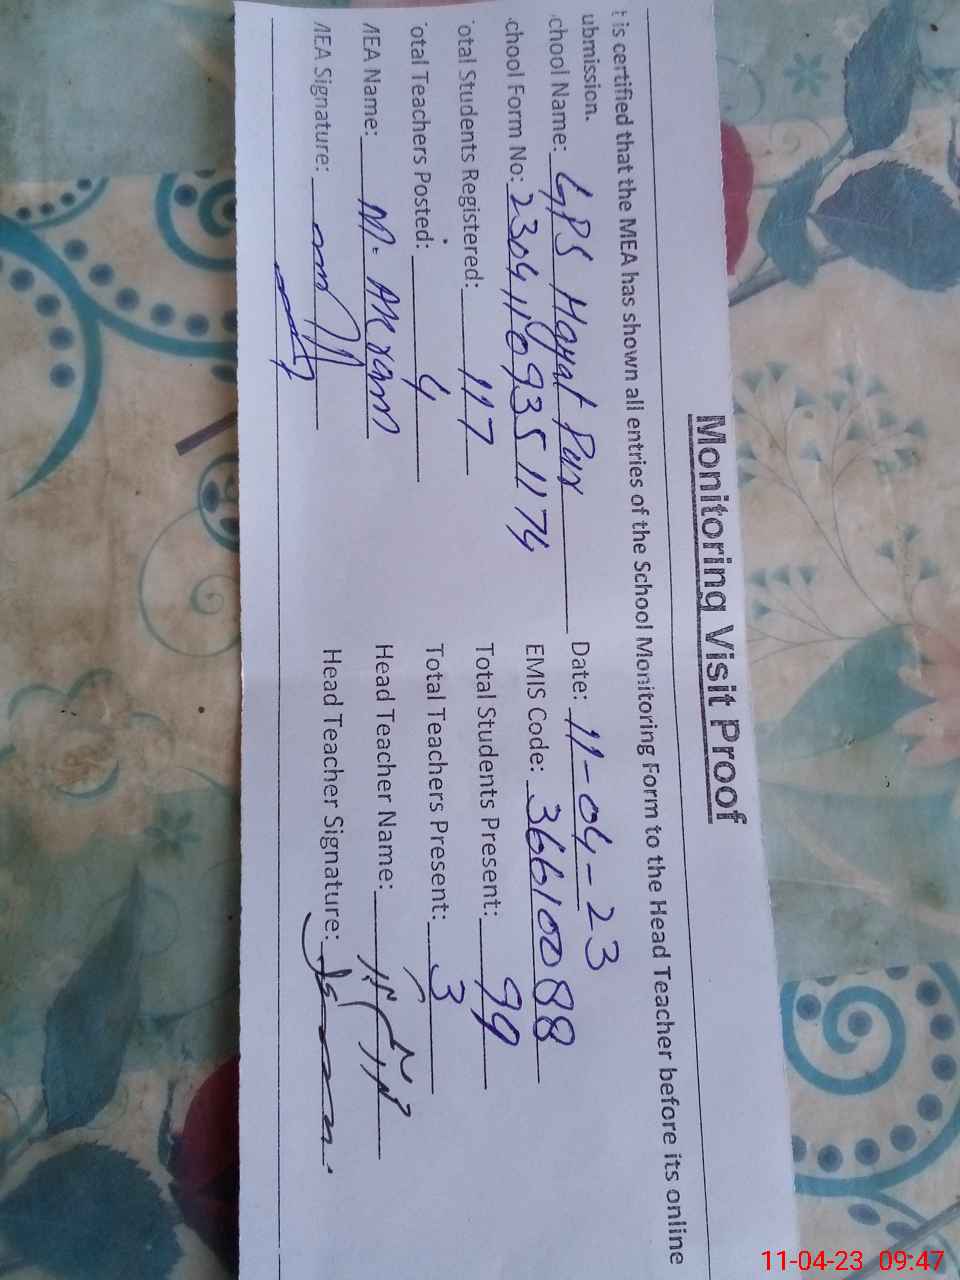 Monitoring Visit Proof
t is certified that the MEA has shown all entries of the School Monitoring Form to the Head Teacher before its online
ubmission.
chool Name: GPS Hayat Pur Date: 11-04-23
chool Form No: 23041109351174 EMIS Code: 36610088
otal Students Registered: 117 Total Students Present: 99
otal Teachers Posted: 4 Total Teachers Present: 3
MEA Name: M. Akram Head Teacher Name:
MEA Signature: Head Teacher Signature:
11-04-23 09:47